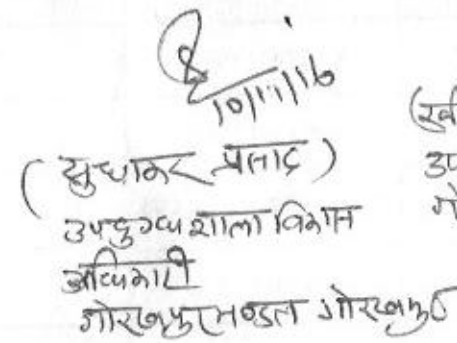 10/11/16
(सुधाकर प्रसाद)
उपदुग्धशाला विकास
अधिकारी
गोरखपुर मण्डल गोरखपुर